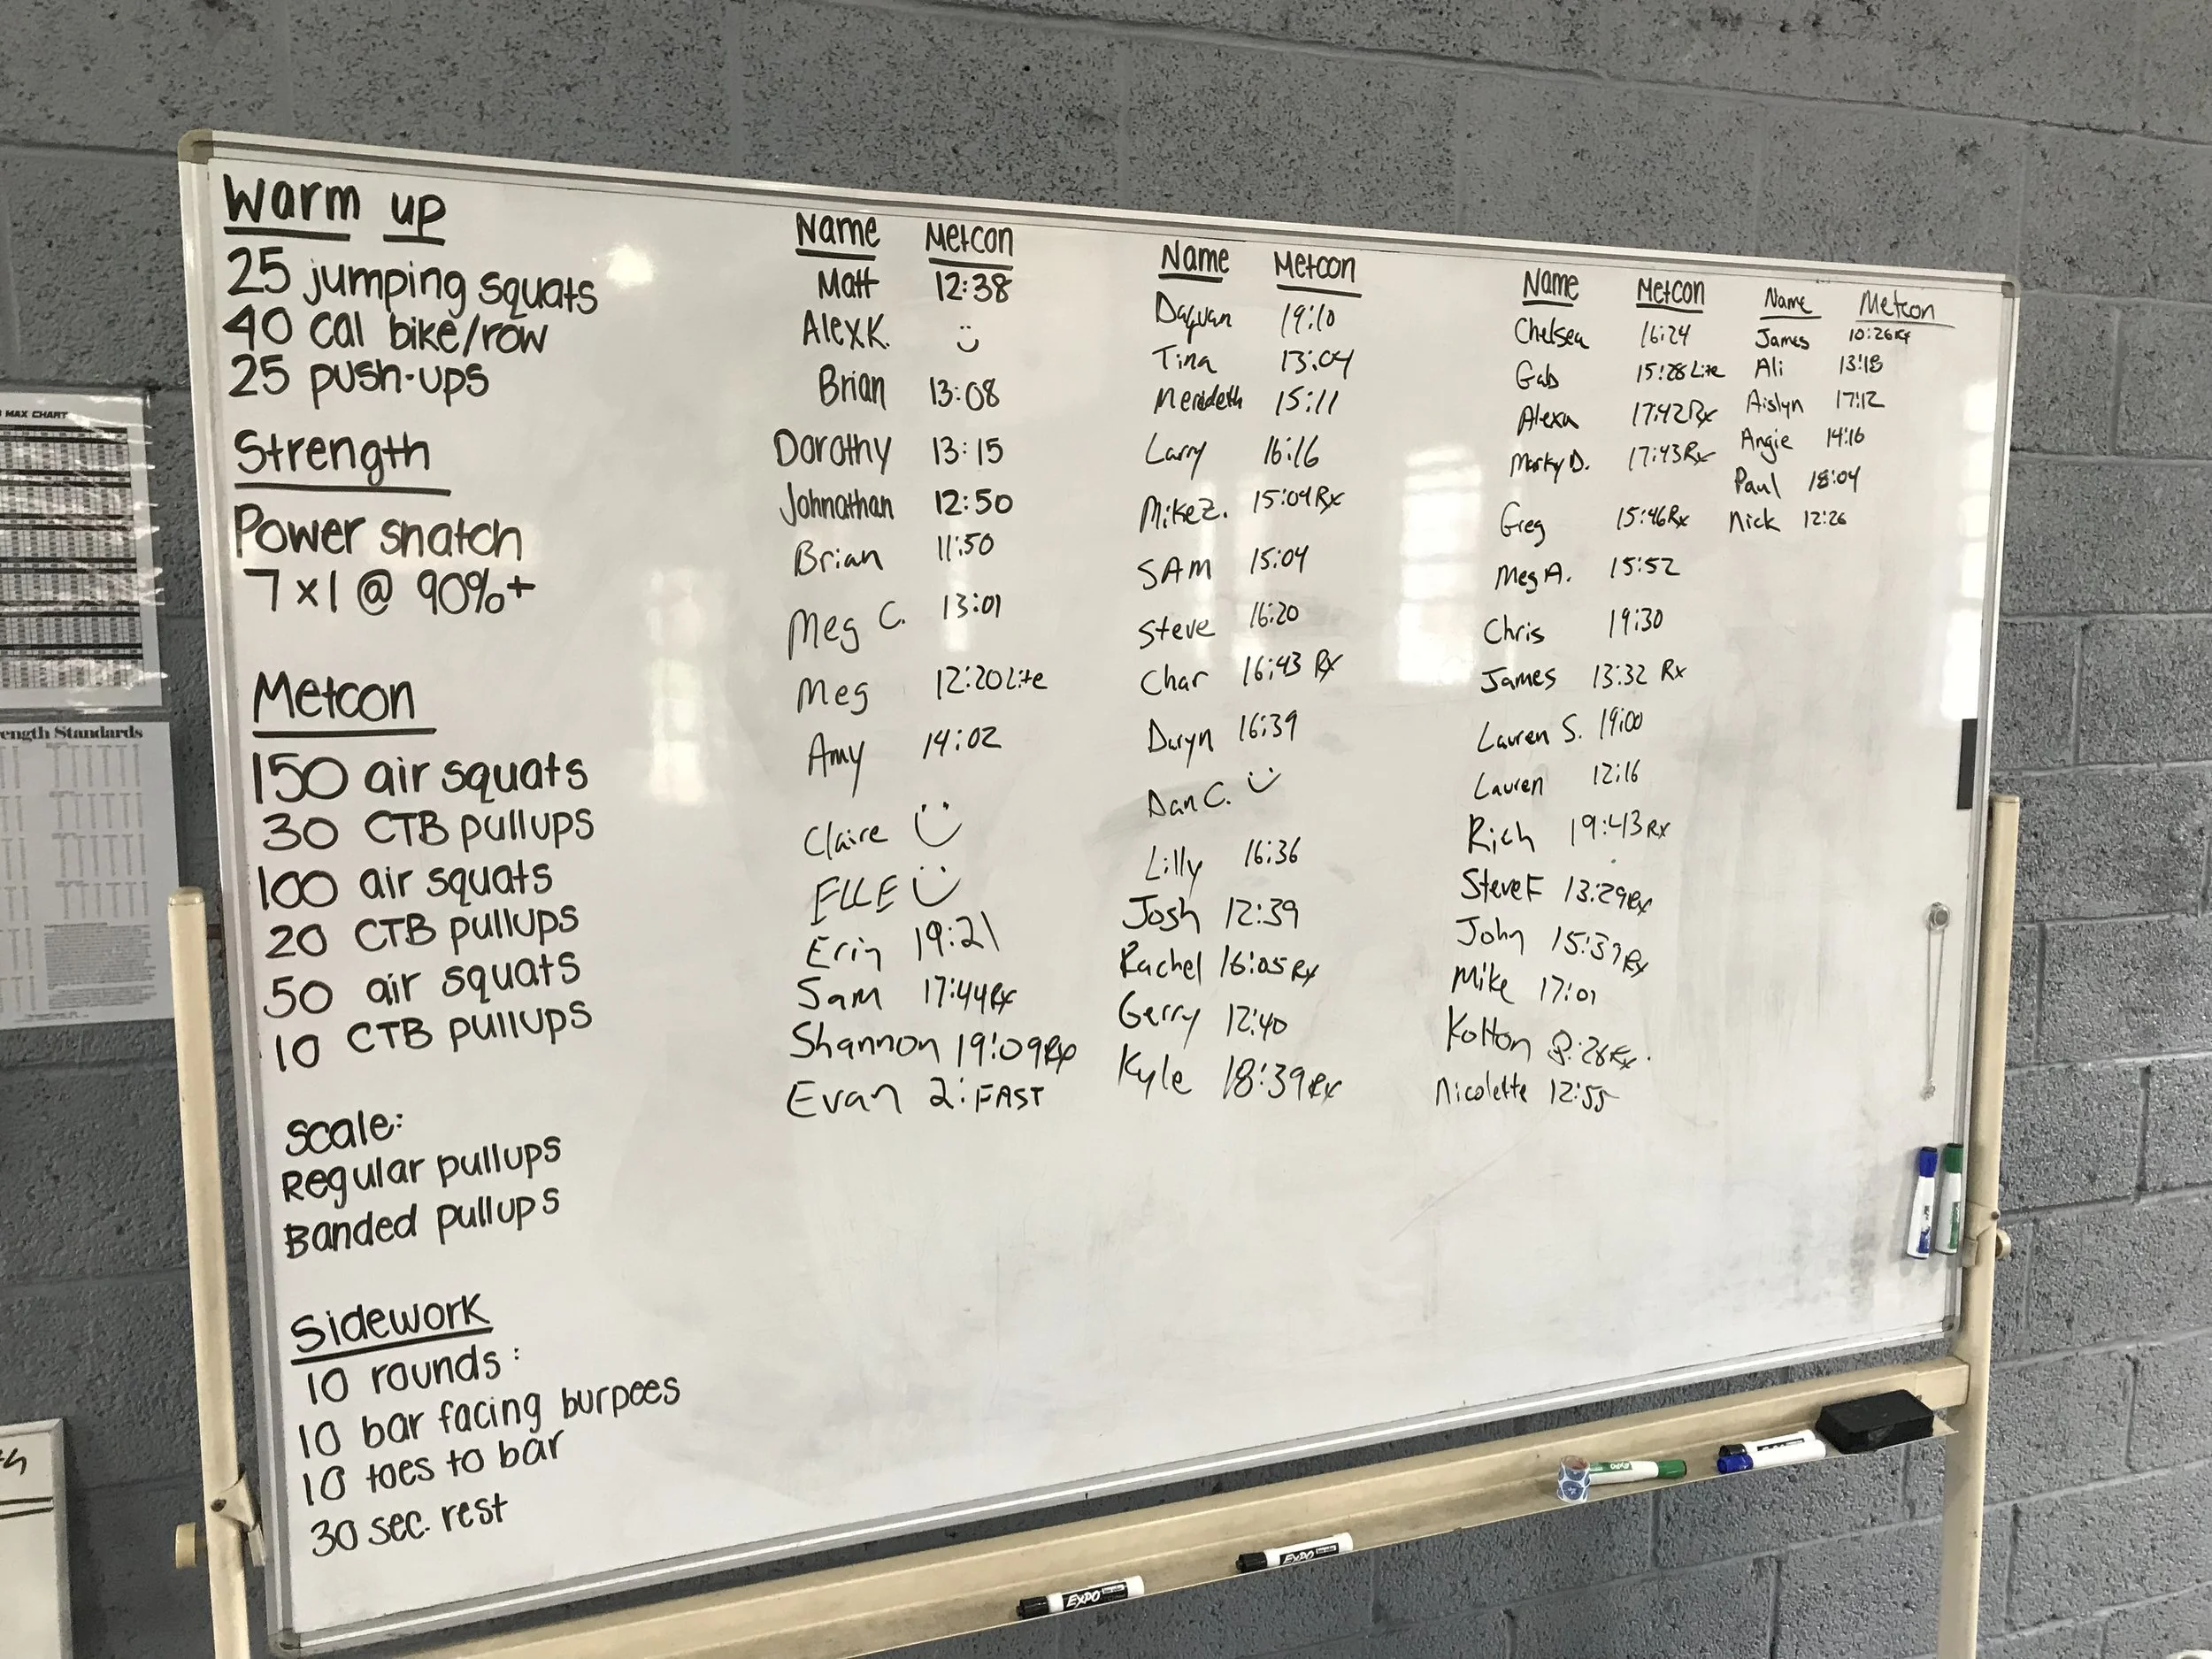 Warm up
25 jumping squats
40 cal bike/row
25 push-ups
Strength
Power snatch
7x1 @ 90%+
Metcon
150 air squats
30 CTB pullups
100 air squats
20 CTB pullups
50 air squats
10 CTB pullups
Scale:
Regular pullups
Banded pullups
Sidework
10 rounds:
10 bar facing burpees
10 toes to bar
30 sec. rest
Name Metcon
Matt 12:38
Alex K. :)
Brian 13:08
Dorothy 13:15
Johnathan 12:50
Brian 11:50
Meg C. 13:01
Meg 12:20 Lite
Amy 14:02
Claire :)
ELLE :)
Erin 19:21
Sam 17:44 Rx
Shannon 19:09 Rx
Evan 2:FAST
Name Metcon
Daquan 19:10
Tina 13:04
Merideth 15:11
Larry 16:16
Mike Z. 15:09 Rx
SAM 15:04
Steve 16:20
Char 16:43 Rx
Daryn 16:39
Dan C. :)
Lilly 16:36
Josh 12:39
Rachel 16:05 Rx
Gerry 12:40
Kyle 18:39 Rx
Name Metcon
Chelsea 16:24
Gab 15:28 Lite
Alexa 17:42 Rx
Marky D. 17:43 Rx
Greg 15:46 Rx
Meg A. 15:52
Chris 19:30
James 13:32 Rx
Lauren S. 19:00
Lauren 12:16
Rich 19:43 Rx
Steve F 13:29 Rx
John 15:37 Rx
Mike 17:01
Kolton 8:28 Rx.
Nicolette 12:55
Name Metcon
James 10:26 Rx
Ali 13:18
Aislyn 17:12
Angie 14:16
Paul 18:04
Nick 12:26
MAX CHART
ength Standards
EXPO
EXPO